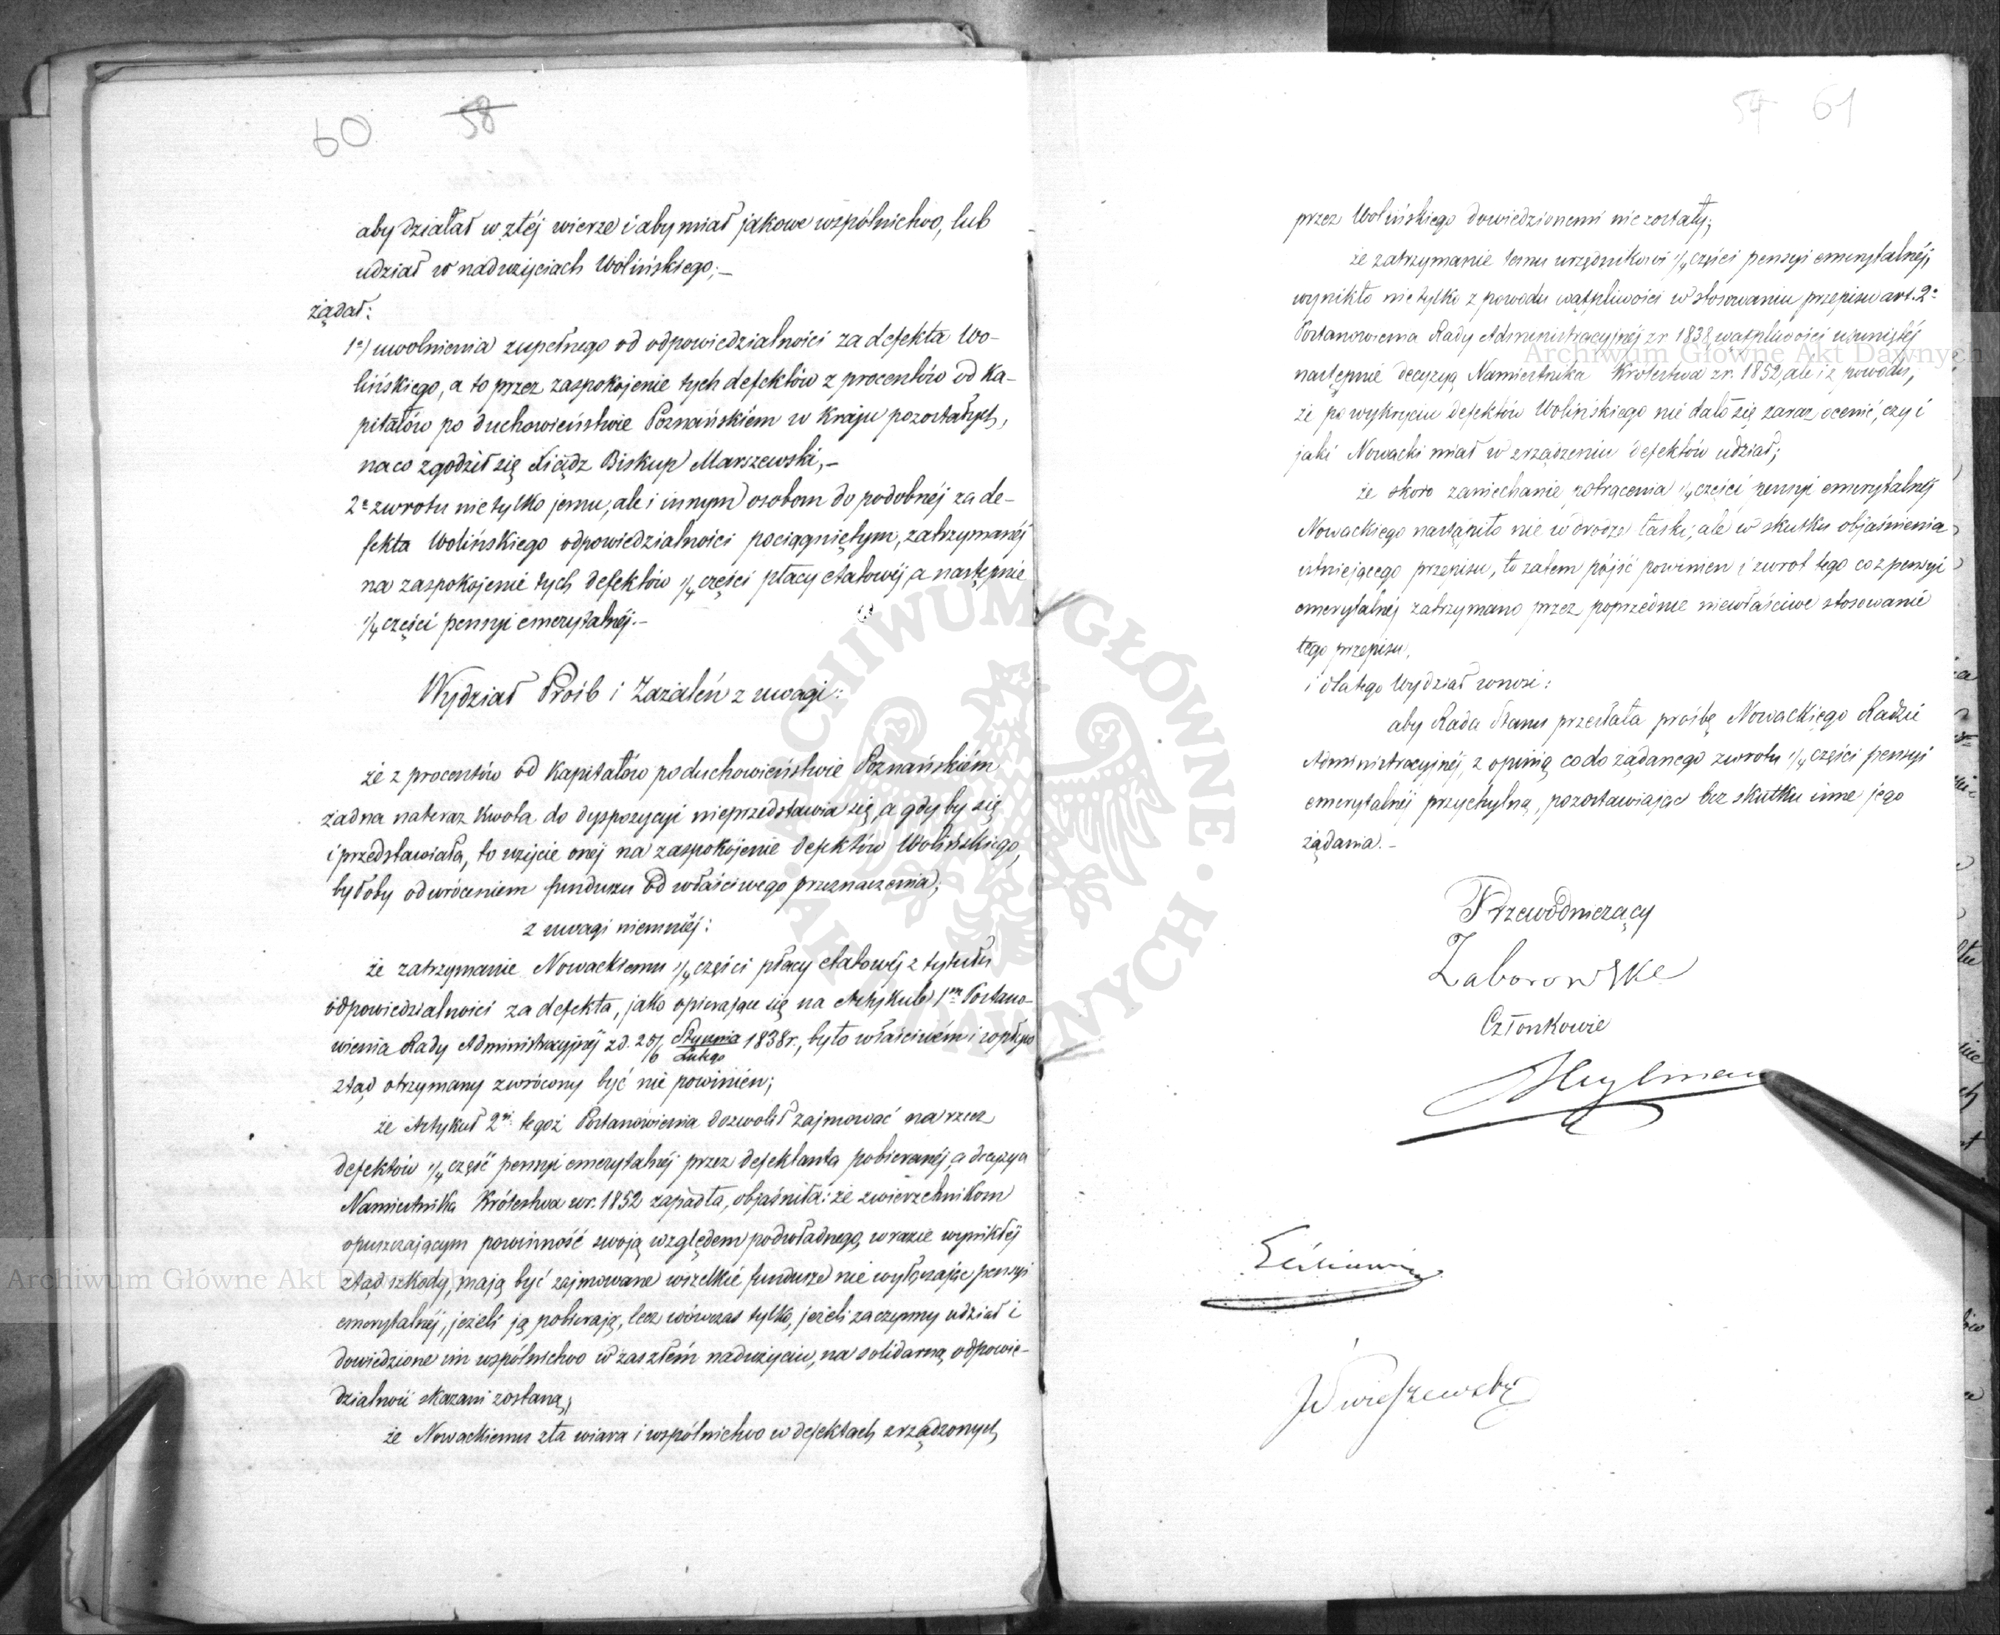 60 58
aby działał w złéj wierze i aby miał jakowe wspólnictwo, lub
udział w nadużyciach Wolińskiego;—
żądał:
1e) uwolnienia zupełnego od odpowiedzialności za defekta Wo-
lińskiego, a to przez zaspokojenie tych defektów z procentów od Ka-
pitałów po duchowieństwie Poznańskiém w Kraju pozostałych,
na co zgodził się Xiądz Biskup Marszewski,—
2e zwrotu nie tylko jemu, ale i innym osobom do podobnéj za de-
fekta Wolińskiego odpowiedzialności pociągniętym, zatrzymanéj
na zaspokojenie tych defektów 1/4 części płacy etatowéj, a następnie
1/4 części pensyi emerytalnéj.—
Wydział Próśb i Zażaleń z uwagi:
że z procentów od Kapitałów po duchowieństwie Poznańskiém
żadna na teraz kwota do dyspozycyi nieprzedstawia się, a gdyby się
i przedstawiała, to użycie onéj na zaspokojenie defektów Wolińskiego,
byłoby odwróceniem funduszu od właściwego przeznaczenia;
z uwagi niemniéj:
że zatrzymanie Nowackiemu 1/4 części płacy etatowéj z tytułu
odpowiedzialności za defekta, jako opierające się na Artykule 1m Postano-
wienia Rady Administracyjnéj z d. 25/6 Stycznia/Lutego 1838 r., było właściwém i wpływ
ztąd otrzymany zwrócony być nie powinien;
że Artykuł 2gi tegoż Postanowienia dozwolił zajmować na rzecz
defektów 1/4 część pensyi emerytalnéj przez defektanta pobieranéj, a decyzya
Namiestnika Królestwa w r. 1852 zapadła, objaśniła: że zwierzchnikom
opuszczającym powinność swoją względem podwładnego, w razie wynikłéj
ztąd szkody, mają być zajmowane wszelkie fundusze nie wyłączając pensyi
emerytalnéj, jeżeli ją pobierają, lecz wówczas tylko, jeżeli za czynny udział i
dowiedzione im wspólnictwo w zaszłém nadużyciu, na solidarną odpowie-
dzialność skazani zostaną;
że Nowackiemu zła wiara i wspólnictwo w defektach zrządzonych
54 61
przez Wolińskiego dowiedzionemi nie zostały;
że zatrzymanie temu urzędnikowi 1/4 części pensyi emerytalnéj,
wynikło nie tylko z powodu wątpliwości w stosowaniu przepisu art. 2e
Postanowienia Rady Administracyjnéj z r. 1838, wątpliwości usuniętéj
następnie decyzyą Namiestnika Królestwa z r. 1852, ale i z powodu,
że po wykryciu defektów Wolińskiego nie dało się zaraz ocenić, czy i
jaki Nowacki miał w zrządzeniu defektów udział;
że skoro zaniechanie potrącenia 1/4 części pensyi emerytalnéj
Nowackiego nastąpiło nie w drodze łaski, ale w skutku objaśnienia
istniejącego przepisu, to zatem pójść powinien i zwrot tego co z pensyi
emerytalnéj zatrzymano przez poprzednie niewłaściwe stosowanie
tego przepisu,
i dlatego Wydział wnosi:
aby Rada Stanu przesłała prośbę Nowackiego Radzie
Administracyjnéj, z opinią co do żądanego zwrotu 1/4 części pensyi
emerytalnéj przychylną, pozostawiając bez skutku inne jego
żądania.—
Przewodniczący
Zaborowski
Członkowie
Heylman
Archiwum Główne Akt Dawnych
Archiwum Główne Akt Dawnych
ARCHIWUM GŁÓWNE · AKT DAWNYCH ·